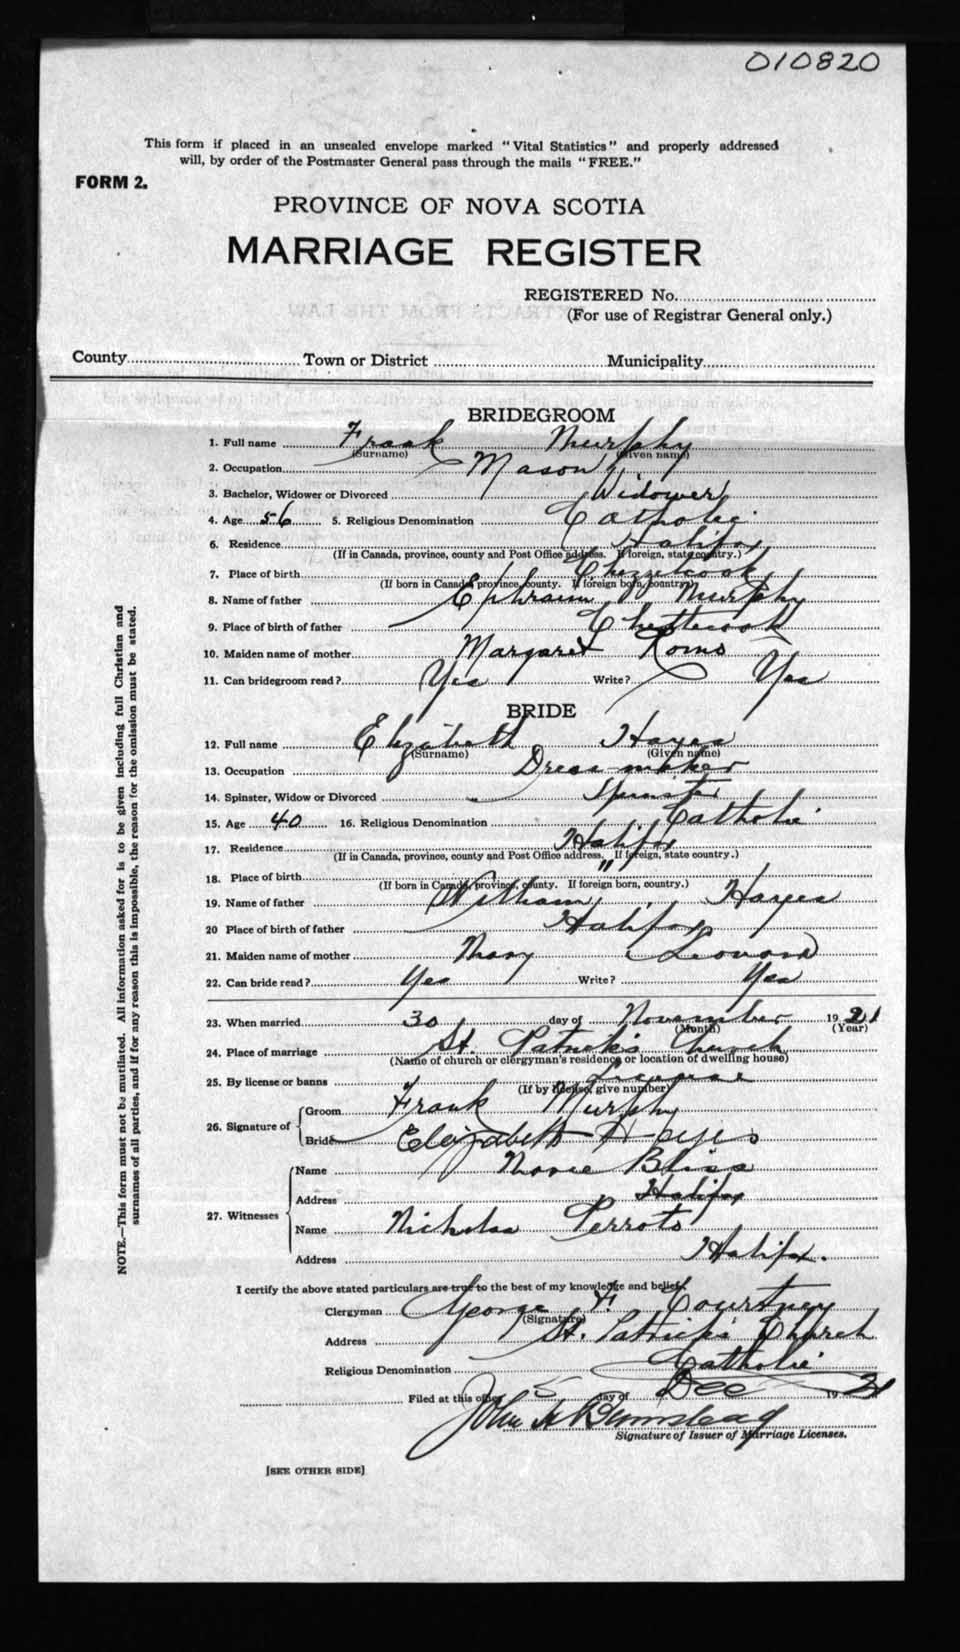 010820
This form if placed in an unsealed envelope marked "Vital Statistics" and properly addressed
will, by order of the Postmaster General pass through the mails "FREE."
FORM 2.
PROVINCE OF NOVA SCOTIA
MARRIAGE REGISTER
REGISTERED No.
(For use of Registrar General only.)
County Town or District Municipality
BRIDEGROOM
1. Full name Frank Murphy
(Surname) (Given name)
2. Occupation Mason
3. Bachelor, Widower or Divorced Widower
4. Age 56 5. Religious Denomination Catholic
6. Residence Halifax
(If in Canada, province, county and Post Office address. If foreign, state country.)
7. Place of birth Chezzetcook
(If born in Canada, province, county. If foreign born, country.)
8. Name of father Ephraim Murphy
9. Place of birth of father
10. Maiden name of mother Margaret
11. Can bridegroom read? Yes Write? Yes
BRIDE
12. Full name Elizabeth Hayes
(Surname) (Given name)
13. Occupation Dress maker
14. Spinster, Widow or Divorced Spinster
15. Age 40 16. Religious Denomination Catholic
17. Residence Halifax
(If in Canada, province, county and Post Office address. If foreign, state country.)
18. Place of birth "
(If born in Canada, province, county. If foreign born, country.)
19. Name of father William Hayes
20 Place of birth of father Halifax
21. Maiden name of mother Mary
22. Can bride read? Yes Write? Yes
23. When married 30 day of November 1921
(Month) (Year)
24. Place of marriage St. Patrick's Church
(Name of church or clergyman's residence or location of dwelling house)
25. By license or banns License
(If by license, give number)
26. Signature of Groom Frank Murphy
Bride Elizabeth Hayes
27. Witnesses
Name Bliss
Address Halifax
Name Nicholas
Address Halifax.
I certify the above stated particulars are true to the best of my knowledge and belief.
Clergyman George F. Courtney
(Signature)
Address St. Patrick's Church
Religious Denomination Catholic
Filed at this office 5 day of Dec 1921
John
Signature of Issuer of Marriage Licenses.
[SEE OTHER SIDE]
NOTE.—This form must not be mutilated. All information asked for is to be given including full Christian and
surnames of all parties, and if for any reason this is impossible, the reason for the omission must be stated.